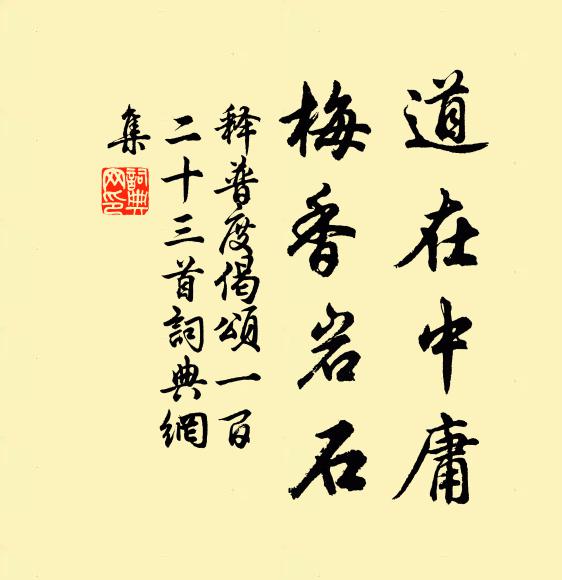 道在中庸
梅香岩石
释普度偈頌一百
二十三首詞典網
集
詞典網印